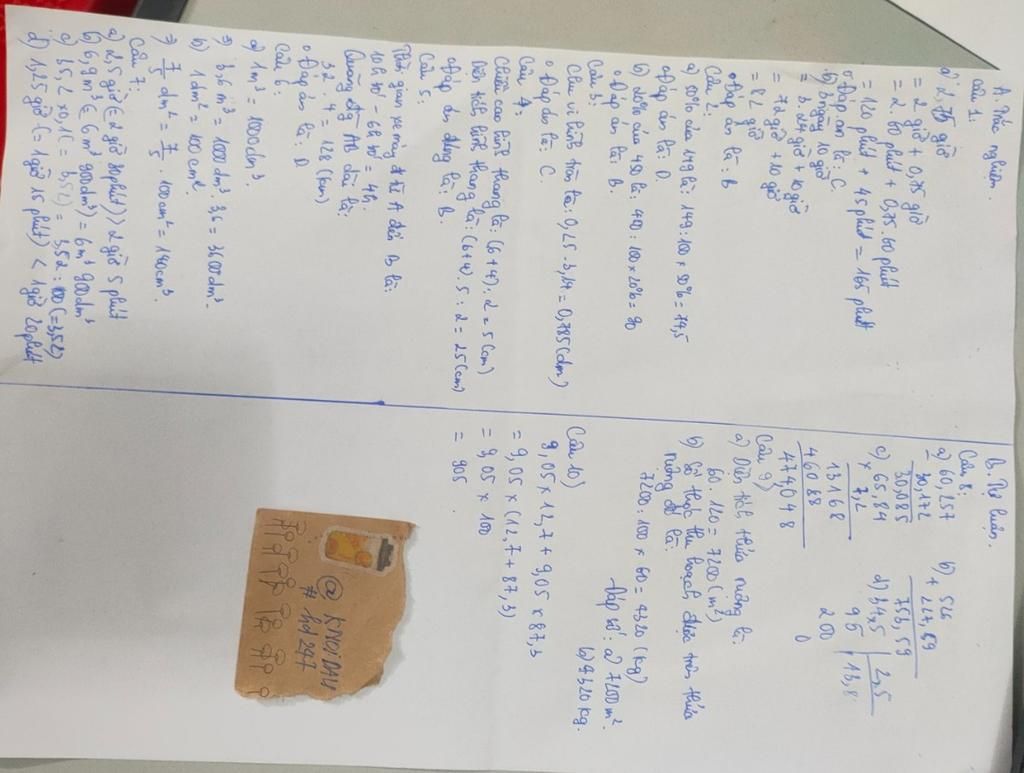 A. Trắc nghiệm.
Câu 1:
a) 2,75 giờ
= 2 giờ + 0,75 giờ
= 2.60 phút + 0,75.60 phút
= 120 phút + 45 phút = 165 phút
o Đáp án là: C.
b) 3 ngày 10 giờ
= 3.24 giờ + 10 giờ
= 72 giờ + 10 giờ
= 82 giờ
o Đáp án là: B
Câu 2:
a) 50% của 149 là: 149:100 x 50% = 74,5
o Đáp án là: D.
b) 20% của 450 là: 450:100x20% = 90
o Đáp án là: B.
Câu 3:
Chu vi hình tròn là: 0,25.3,14 = 0,785 (dm)
o Đáp án là: C.
Câu 4:
Chiều cao hình thang là: (6+4):2 = 5 (cm)
Diện tích hình thang là: (6+4).5:2 = 25 (cm)
o Đáp án đúng là: B.
Câu 5:
Thời gian xe máy đi từ A đến B là:
10h30' - 6h30' = 4h.
Quãng đường AB dài là:
32.4 = 128 (km)
o Đáp án là: D
Câu 6:
a) 1m³ = 1000dm³.
3,6m³ = 1000dm³.3,6 = 3600dm³.
b) 1dm² = 100cm².
7/5 dm² = 7/5 . 100cm² = 140cm³.
Câu 7:
a) 2,5 giờ (= 2 giờ 30 phút) > 2 giờ 5 phút
b) 6,9m³ (= 6m³ 900dm³) = 6m³ 900dm³
c) 35,2 x 0,1 (= 3,52) = 3,52:100 (=3,52)
d) 1,25 giờ (= 1 giờ 15 phút) < 1 giờ 20 phút
B. Tự luận.
Câu 8:
a) 60,257
- 30,172
30,085
b) 526
+ 227,59
753,59
c) 65,84
x 7,2
13168
46088
474,048
d) 34,5 2,5
95 13,8
200
0
Câu 9)
a) Diện tích thửa ruộng là:
60.120 = 7200 (m²)
b) Số thóc thu hoạch được trên thửa
ruộng đó là:
7200:100 x 60 = 4320 (kg)
Đáp số: a) 7200m².
b) 4320kg.
Câu 10)
9,05 x 12,7 + 9,05 x 87,3
= 9,05 x (12,7 + 87,3)
= 9,05 x 100
= 905.
@ KNOiDAU
# hd247